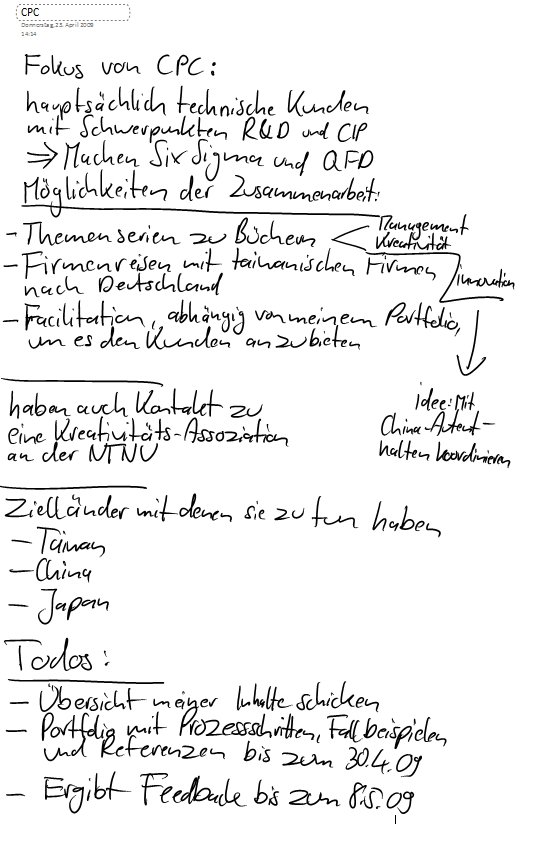 CPC
Donnerstag, 23. April 2009
14:14
Fokus von CPC:
hauptsächlich technische Kunden
mit Schwerpunkten R&D und CIP
⇒ Machen Six Sigma und QFD
Möglichkeiten der Zusammenarbeit:
- Themenserien zu Büchern < Management
Kreativität
- Firmenreisen mit taiwanischen Firmen
nach Deutschland
Innovation
- Facilitation, abhängig von meinem Portfolio,
um es den Kunden anzubieten
idee: Mit
China-Aufent-
halten koordinieren
haben auch Kontakt zu
eine Kreativitäts-Assoziation
an der NTNU
Zielländer mit denen sie zu tun haben
- Taiwan
- China
- Japan
Todos:
- Übersicht meiner Inhalte schicken
- Portfolio mit Prozessschritten, Fallbeispielen
und Referenzen bis zum 30.4.09
- Ergibt Feedback bis zum 8.5.09